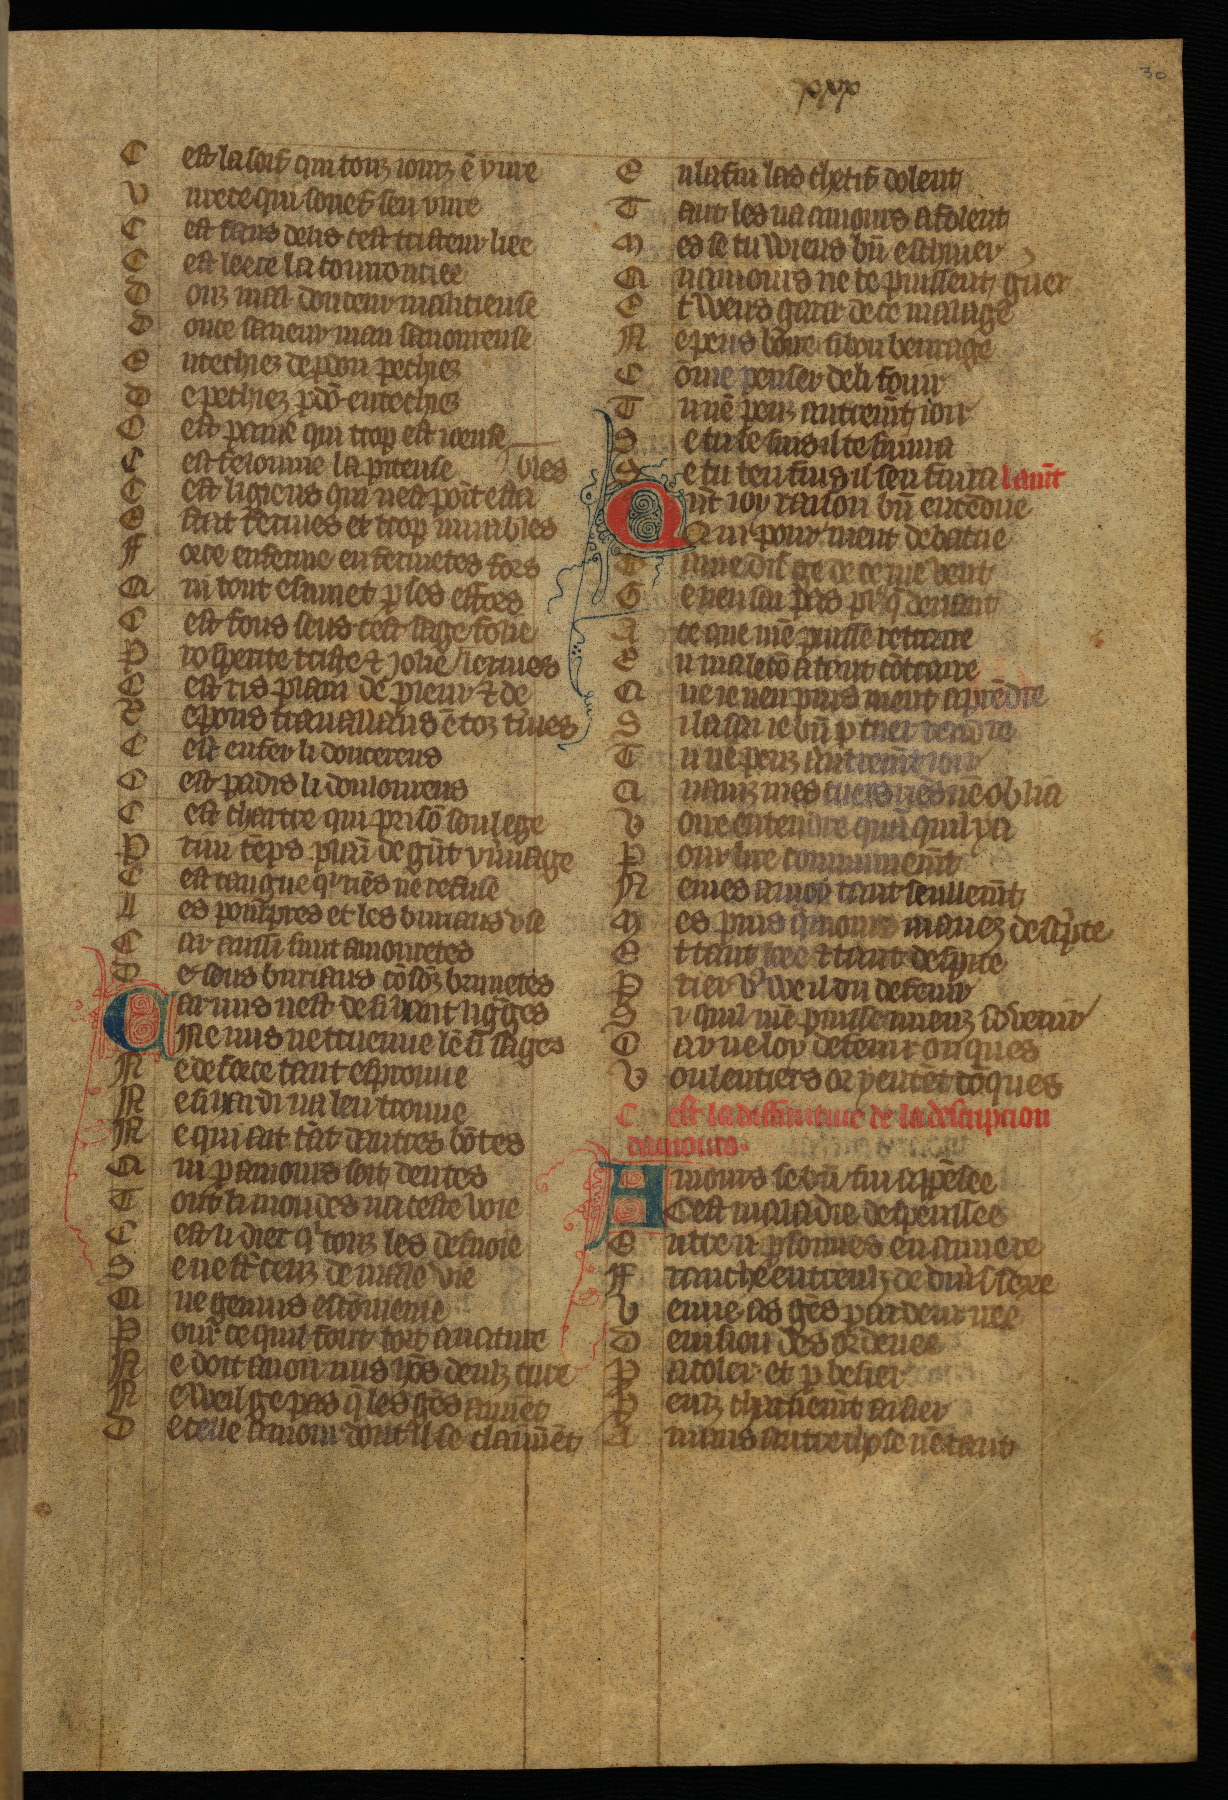 xxx
30
C est la soif qui touz iourz ē yure
V urece qui soy est sen yure
C est faus delis cest tristeur liee
C est leece la courouciee
D ouz mal douceur malicieuse
D ouce saueur mau sauoureuse
E ntechiez de pdon pechiez
D e pechiez pdō entechiez
C est paine qui trop est ioeuse
C est felonnie la piteuse
C est li gieus qui nest poīt esta bles
E stat fermes et trop muables
F orce enferme enfermetes fors
Q ui tout esmuet p ses effors
C est fous sens cest sage folie
P rosperite triste & iolie
C est ris plain de pleur & de lermes
R epous trauaillans ē touz tmes
C est enfer li doucereus
C est padis li douloureus
C est chartre qui prisō soulege
P rim tēps plaī de gūt yurnage
C est taigne qi riēs ne refuse
L es pourpres et les buriaus use
C ar aussi sunt amouretes
S es sous buriaus cō souz brunetes
Car nus nest de si haut lignages
Ne nus ne trueuue lē si sages
N e de force tant esprouue
N e si hardi na leu trouue
N e qui ait tāt dautres bōtes
Q ui p amours soit dontes
T out li mondes ua ceste uoie
C est li diex qi touz les desuoie
S e ne sūt ceuz de male uie
Q ue genius escōmenie
P our ce quil font tort a nature
N e doit auoir nus yōs deuls cure
N e ueil ge pas q̄ les gēs aimēt
D e celle amour dont il se claimēt
E n la fin las chetif dolent
T ant les ua amours afolent
M es se tu ueus bn eschiuer
Q uamours ne te puissent greuer
E t ueus garir de ce malage
N e peus boiure si bon beurage
C ōme penser de li fouir
T u nē peuz autremt ioir
S e tu le suis il te suiura
S e tu ten fuis il sen fuira
lamt
Qnt ioy raison bn entēdue
Qui pour nient debatue
D ame dis ge de ce me uent
G e nen sai pas plq deuant
A ce que mē puisse retraire
E n ma lecō a tant cōtraire
Q ue ie nen puis nient aprēdre
S i la sai ie bn p cuer rendre
T u ne peuz autremt ioir
Q uamz mes cuers riēs nē oblia
V oire entendre quā quil y a
P our lire communemt
N emes a moy tant seulemt
M es puis qamours mauez descripte
E t tant loee & tant despite
P rier v9 ueil du defenir
S i quil mē puisse mieuz souenir
C ar ne loy defenir onques
V oulentiers or y entēt dōques
C est la diffinitiue de la descripcion
damours.
Amours se bn sui apēsee
Cest maladie de pensee
E ntre ii psonnes en annexe
F ranche entreulz de diuers sexe
V enue as gēs par deuit nee
D e uision desordenee
P acoler et p besier
P euz charnemt aisier
A mans autre chose nētant